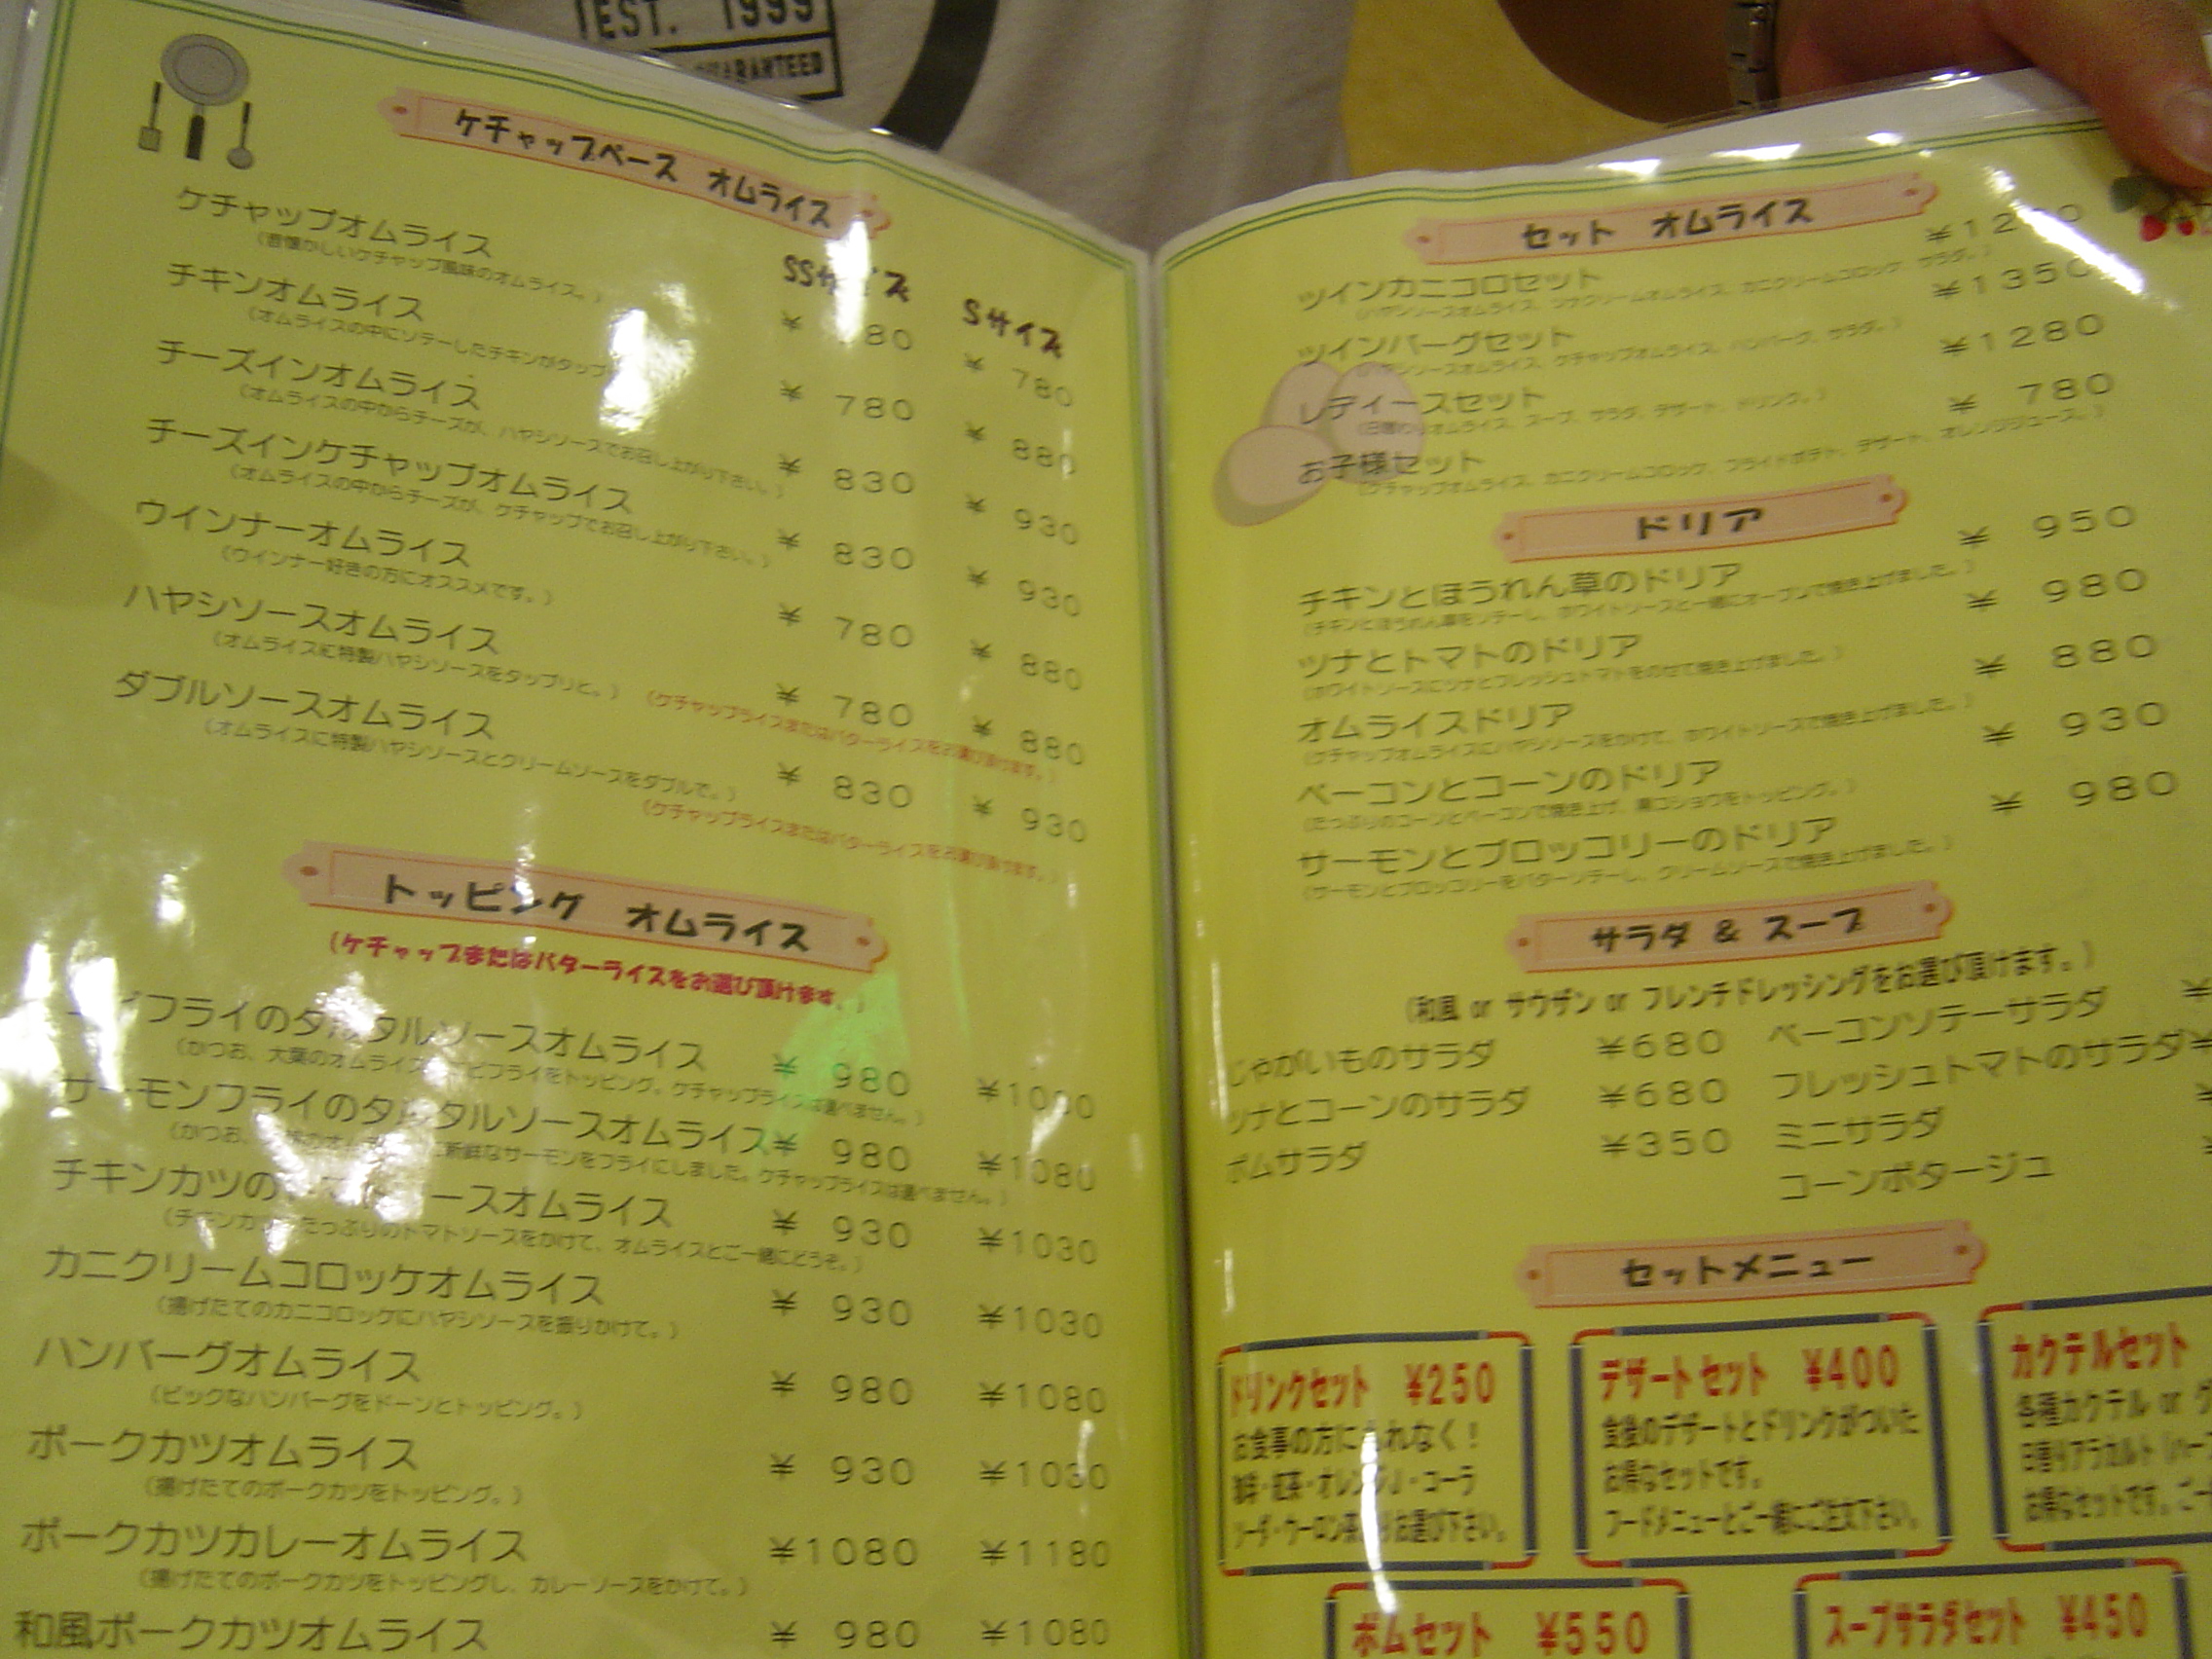 EST. 1999
ケチャップベース オムライス
SSサイズ Sサイズ
ケチャップオムライス 80 ¥ 780
(昔懐かしいケチャップ風味のオムライス。)
チキンオムライス ¥ 780 ¥ 880
(オムライスの中にソテーしたチキンがタップ
チーズインオムライス ¥ 830 ¥ 930
(オムライスの中からチーズが、ハヤシソースでお召し上がり下さい。)
チーズインケチャップオムライス ¥ 830 ¥ 930
(オムライスの中からチーズが、ケチャップでお召し上がり下さい。)
ウインナーオムライス ¥ 780 ¥ 880
(ウインナー好きの方にオススメです。)
ハヤシソースオムライス ¥ 780 ¥ 880
(オムライスに特製ハヤシソースをタップリと。)
(ケチャップライスまたはバターライスをお選び頂けます。)
ダブルソースオムライス ¥ 830 ¥ 930
(オムライスに特製ハヤシソースとクリームソースをダブルで。)
(ケチャップライスまたはバターライスをお選び頂けます。)
トッピング オムライス
(ケチャップまたはバターライスをお選び頂けます。)
フライのタルタルソースオムライス ¥ 980
(かつお、大葉のオムライス ビフライをトッピング。ケチャップライスは選べません。)
サーモンフライのタルタルソースオムライス ¥ 980 ¥1080
新鮮なサーモンをフライにしました。ケチャップライスは選べません。)
チキンカツの ースオムライス ¥ 930 ¥1030
たっぷりのトマトソースをかけて、オムライスとご一緒にどうぞ。)
カニクリームコロッケオムライス ¥ 930 ¥1030
(揚げたてのカニコロッケにハヤシソースを振りかけて。)
ハンバーグオムライス ¥ 980 ¥1080
(ビックなハンバーグをドーンとトッピング。)
ポークカツオムライス ¥ 930 ¥1030
(揚げたてのポークカツをトッピング。)
ポークカツカレーオムライス ¥1080 ¥1180
(揚げたてのポークカツをトッピングし、カレーソースをかけて。)
和風ポークカツオムライス ¥ 980 ¥1080
セット オムライス
ツインカニコロセット
(ハヤシソースオムライス、ツナクリームオムライス、カニクリームコロッケ、サラダ。)
ツインバーグセット ¥1350
(ハヤシソースオムライス、ケチャップオムライス、ハンバーグ、サラダ。)
レディースセット ¥1280
(日替わりオムライス、スープ、サラダ、デザート、ドリンク。)
お子様セット ¥ 780
(ケチャップオムライス、カニクリームコロッケ、フライドポテト、デザート、オレンジジュース。)
ドリア
チキンとほうれん草のドリア ¥ 950
(チキンとほうれん草をソテーし、ホワイトソースと一緒にオーブンで焼き上げました。)
ツナとトマトのドリア ¥ 980
(ホワイトソースにツナとフレッシュトマトをのせて焼き上げました。)
オムライスドリア ¥ 880
(ケチャップオムライスにハヤシソースをかけて、ホワイトソースで焼き上げました。)
ベーコンとコーンのドリア ¥ 930
(たっぷりのコーンとベーコンで焼き上げ、黒コショウをトッピング。)
サーモンとブロッコリーのドリア ¥ 980
(サーモンとブロッコリーをバターソテーし、クリームソースで焼き上げました。)
サラダ & スープ
(和風 or サウザン or フレンチドレッシングをお選び頂けます。)
じゃがいものサラダ ¥680 ベーコンソテーサラダ ¥
ツナとコーンのサラダ ¥680 フレッシュトマトのサラダ¥
ポムサラダ ¥350 ミニサラダ
コーンポタージュ
セットメニュー
ドリンクセット ¥250
お食事の方にもれなく!
紅茶・オレンジJ・コーラ
ソーダ・ウーロン お選び下さい。
デザートセット ¥400
食後のデザートとドリンクがついた
お得なセットです。
フードメニューとご一緒にご注文下さい。
カクテルセット
各種カクテル or
日替りアラカルト
お得なセットです。ご一
ポムセット ¥550
スープサラダセット ¥450